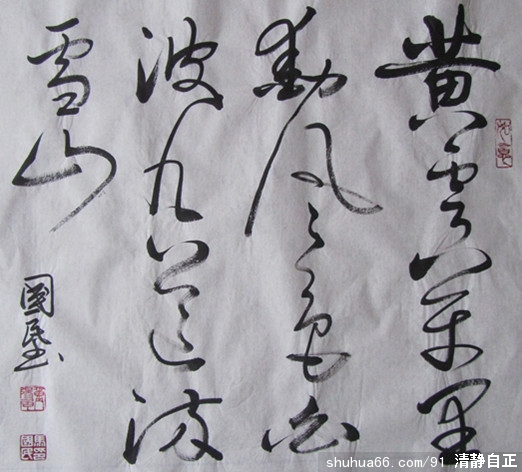 黄雲萬里
動風色白
波九道流
雪山
國
shuhua66.com/91 清静自正